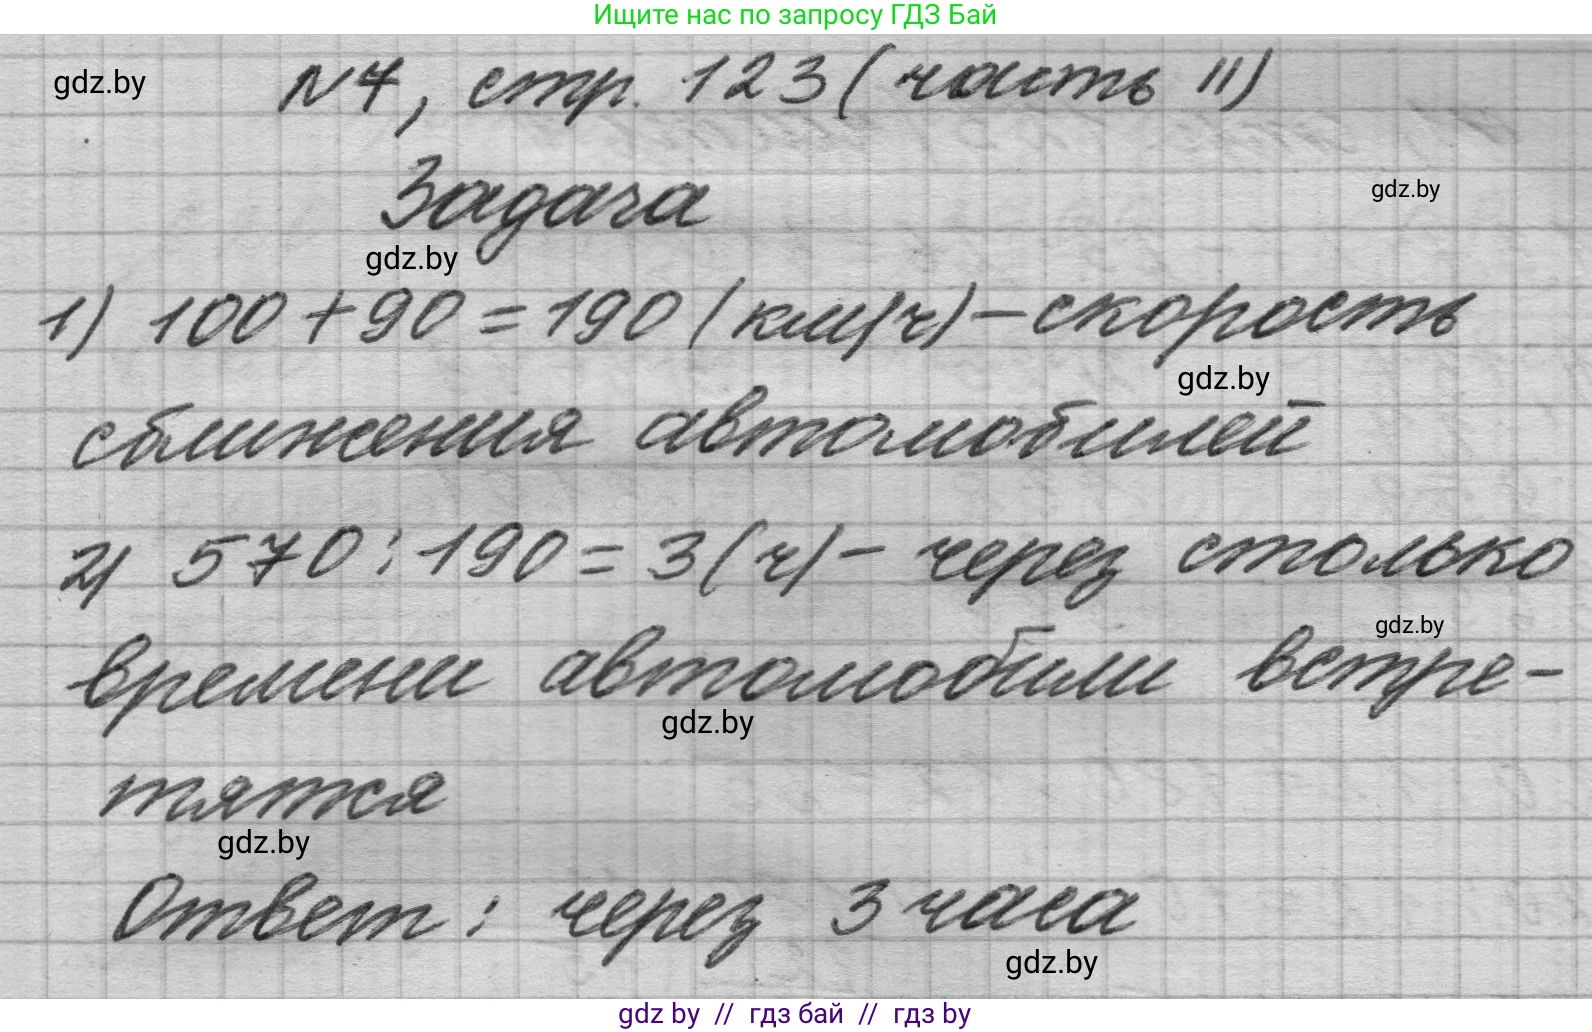 Ищите нас по запросу ГДЗ Бай
gdz.by
№7, стр. 123 (часть II)
Задача
gdz.by
gdz.by
1) 100 + 90 = 190 (км/ч) - скорость
gdz.by
сближения автомобилей
2) 570 : 190 = 3 (ч) - через столько
gdz.by
времени автомобили встре-
gdz.by
тятся
gdz.by
Ответ: через 3 часа
gdz.by
gdz by // гдз бай // гдз by